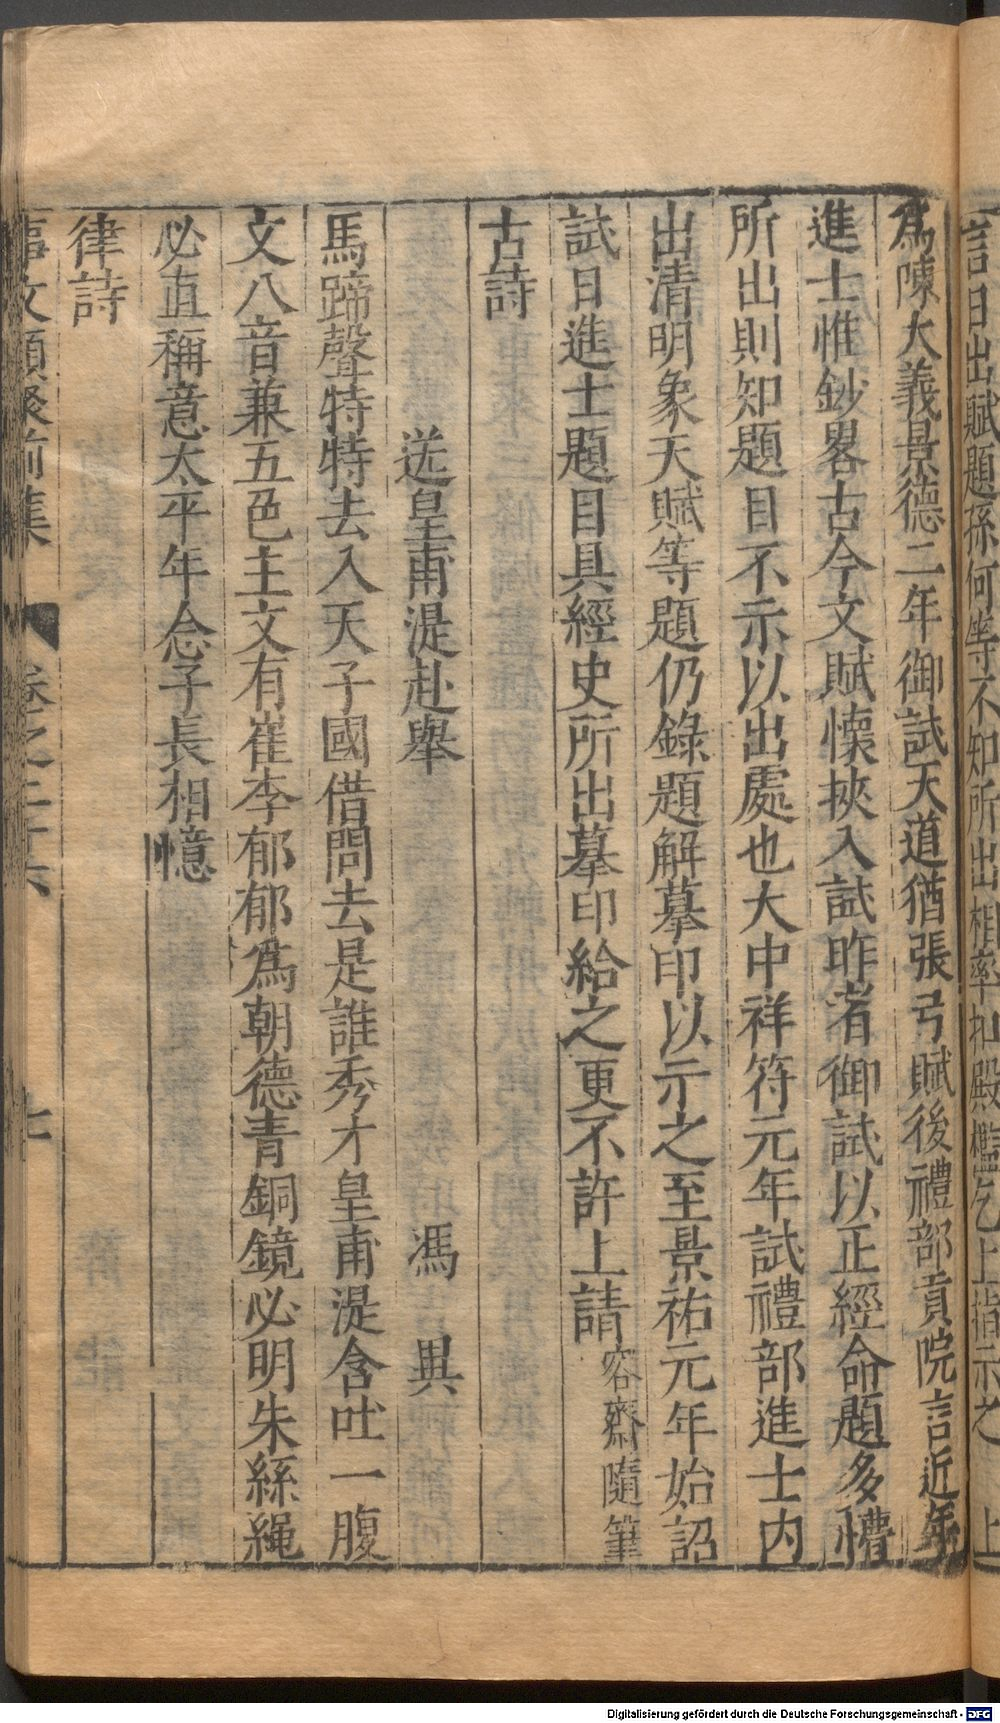 言日出賦題孫何等不知所出相率扣殿檻乞上指示之　上
爲陳大義景德二年御試天道猶張弓賦後禮部貢院言近年
進士惟鈔畧古今文賦懷挾入試昨者御試以正經命題多懵
所出則知題目不示以出處也大中祥符元年試禮部進士内
出清明象天賦等題仍錄題解摹印以示之至景祐元年始詔
試日進士題目具經史所出摹印給之更不許上請容齋隨筆
古詩
送皇甫湜赴舉　馮　異
馬蹄聲特特去入天子國借問去是誰秀才皇甫湜含吐一腹
文八音兼五色主文有崔李郁郁爲朝德青銅鏡必明朱絲繩
必直稱意太平年念子長相憶
律詩
事文類聚前集　卷之二十六　七
Digitalisierung gefördert durch die Deutsche Forschungsgemeinschaft - DFG